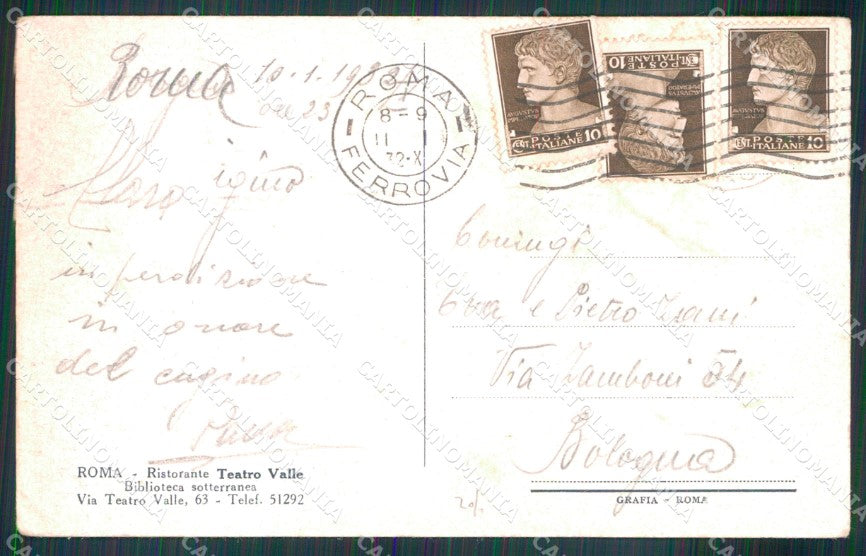 Roma 10-1-1932
ore 23
Caro
in perdizione
in onore
del cugino
ROMA - Ristorante Teatro Valle
Biblioteca sotterranea
Via Teatro Valle, 63 - Telef. 51292
ROMA
8-9
11 I
32·X
FERROVIA
CENT. POSTE ITALIANE 10
CENT. POSTE ITALIANE 10
CENT. POSTE ITALIANE 10
Coniugi
e Pietro Zani
Via Zamboni 54
Bologna
GRAFIA - ROMA
CARTOLINOMANIA